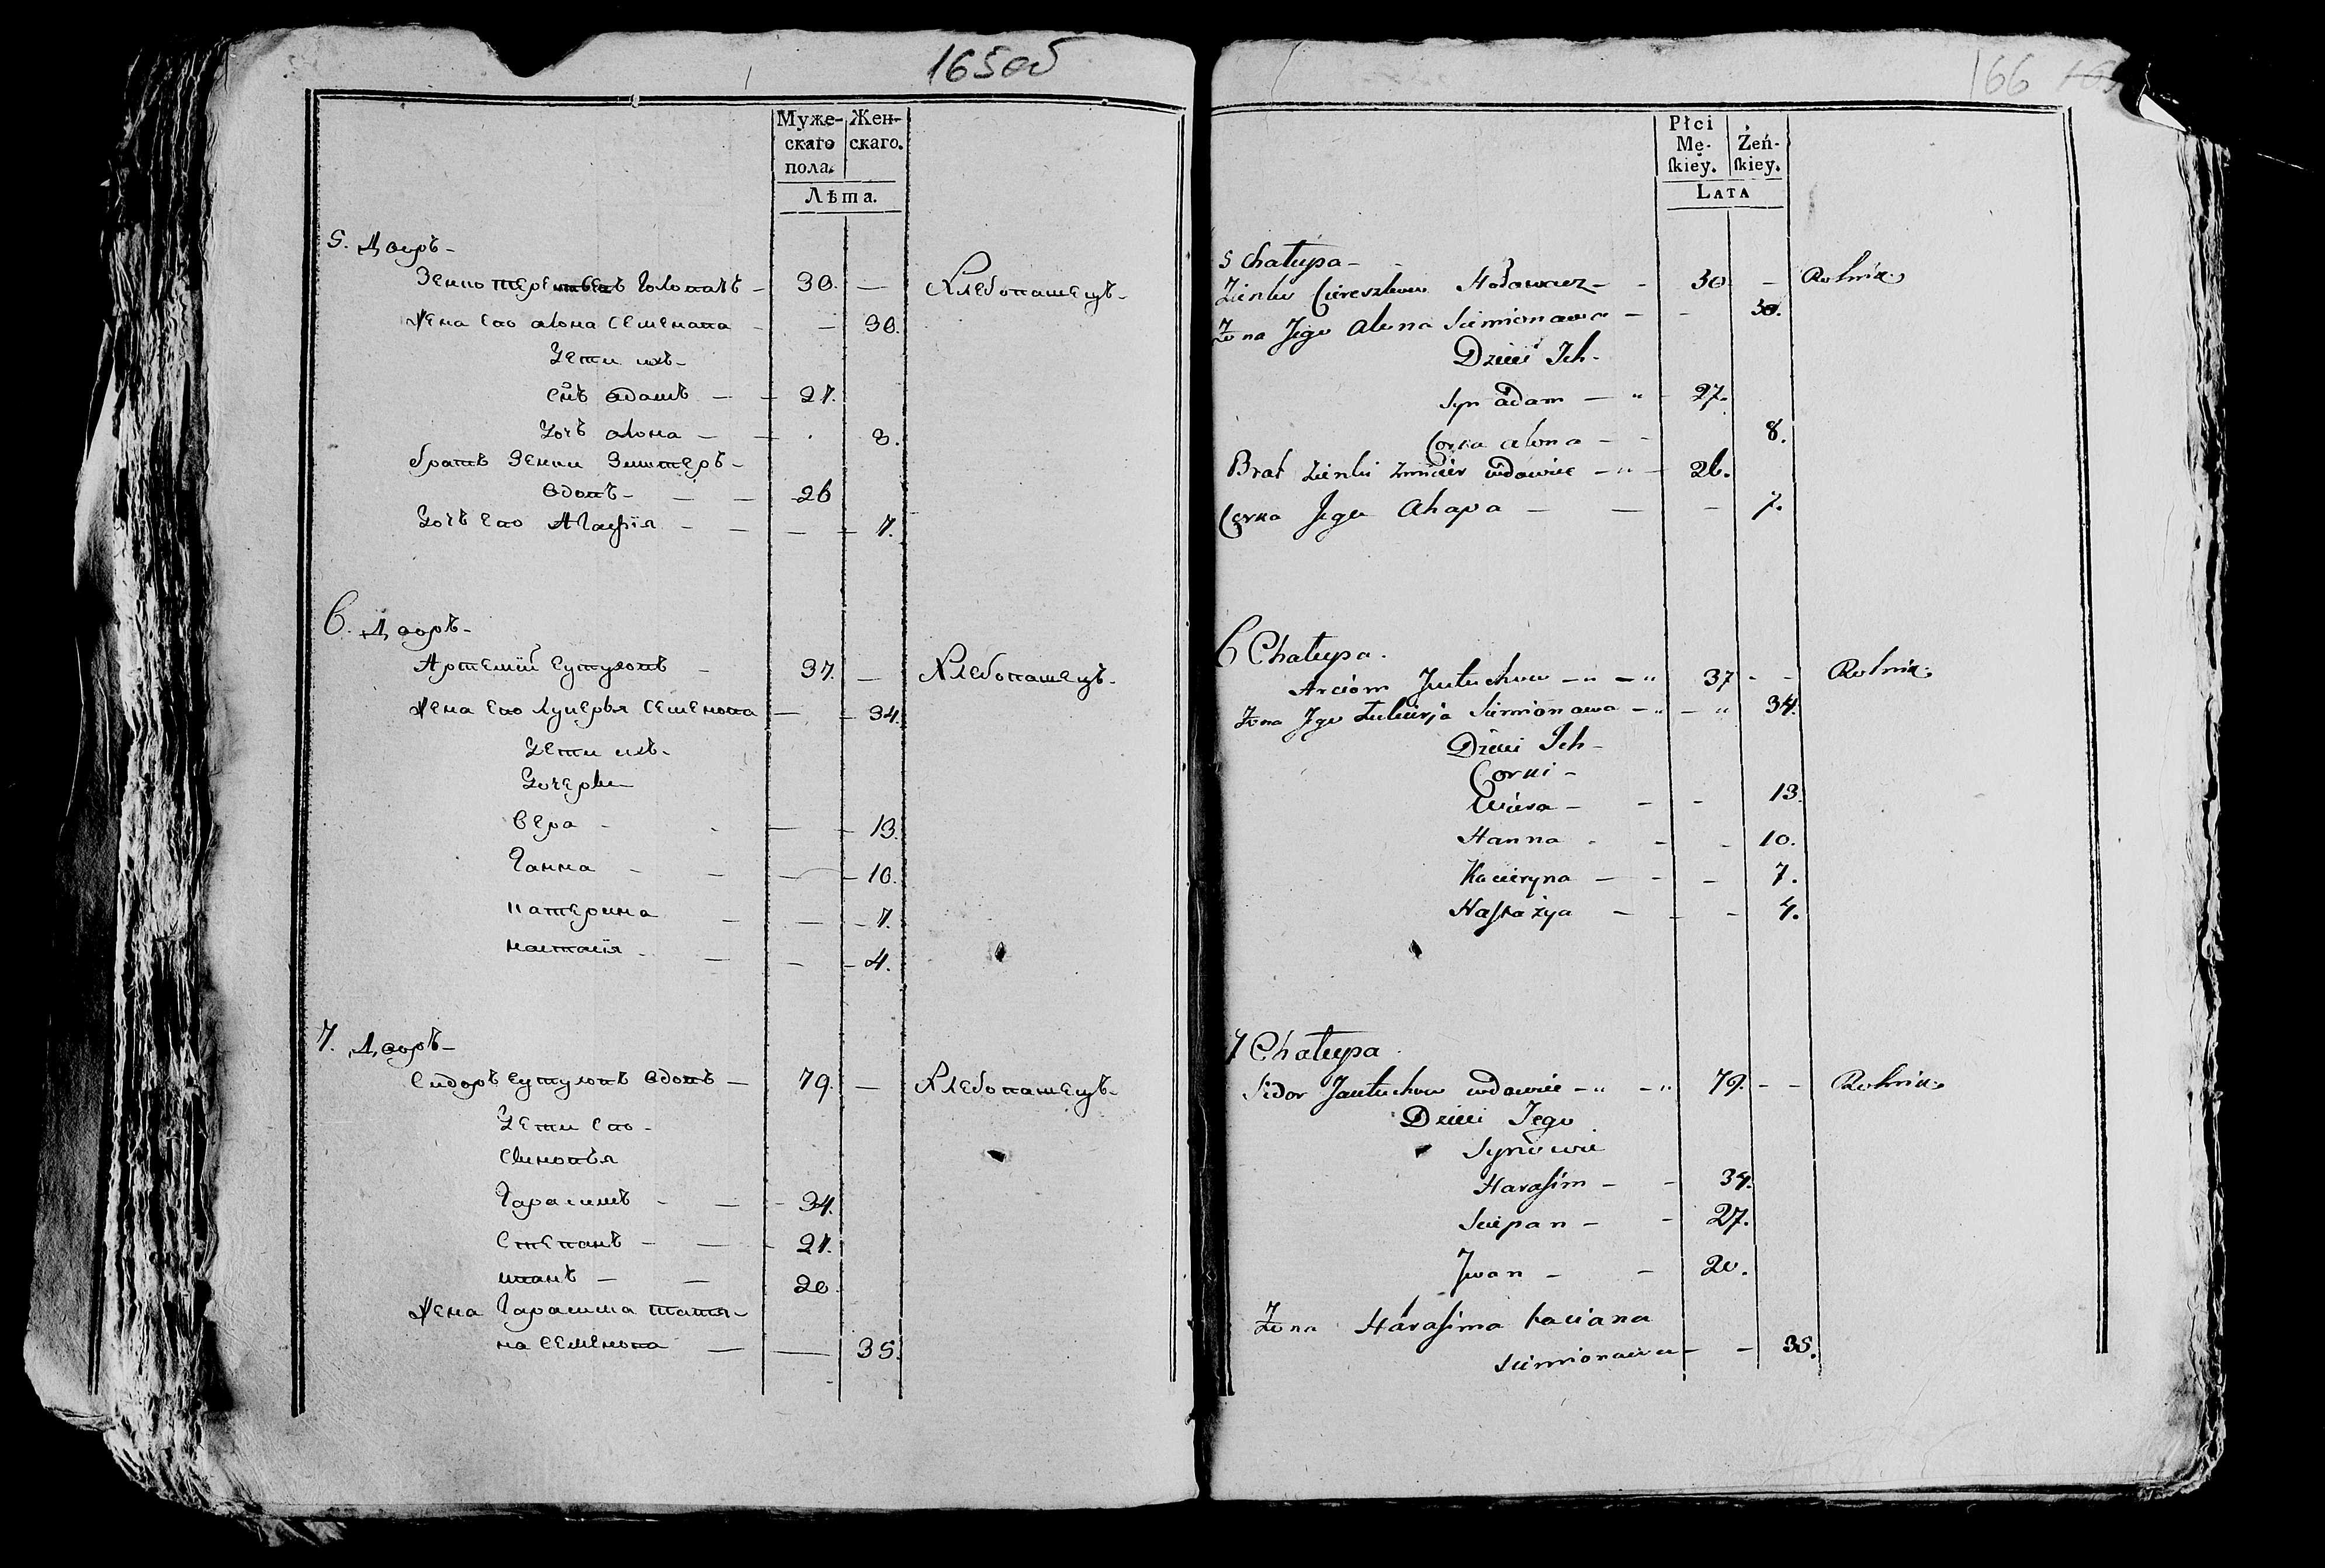 165об
Муже-
скаго
пола.
Жен-
скаго.
Лѣта.
5. Дворъ -
Зенко Голова - 30. — Хлебопашецъ -
Жена его алона Семенова - — 30.
Дети ихъ -
Сиъ адамъ — 27.
Дочь алона — 8.
братъ Зенки Змитеръ -
вдовъ - — — 26
Дочь его Агафія - — — 7.
6. Дворъ -
Артемій Евтуховъ - 37. — Хлебопашецъ -
Жена его Лукерья Семенова — 34.
Дети ихъ -
Дочерьи
Вера - — 13.
Ганна - — — 10.
Катерина — — 7.
настасія - — — 4.
7. Дворъ -
Сидоръ Евтуховъ вдовъ — 79. — Хлебопашецъ -
Дети его -
Сыновья
Гарасимъ - — 34.
Степанъ - — 27.
иванъ — — 20.
Жена Гарасима татья-
на Семенова — — 35.
166
Płci
Mę-
ſkiey.
Żeń-
ſkiey.
LATA
5 Chałupa -
Zienko Ciereszkow - - 30 - Rolnik
Żona Jego Alona Siemionowa — - 30.
Dzieci Ich -
Syn adam — " 27.
Corka alona — - 8.
Brat Zienki Zmicier wdowiec — " — 26.
Corka Jego Ahapa — — - 7.
6 Chałupa.
Arciom Jewtuchow — " — " 37 - - Rolnik
Żona Jego Łukierja Siemionowa — " — " 34.
Dzieci Ich -
Corki -
Wiera - - - 13
Hanna - - - 10.
Kacieryna — - - 7.
Naſtazya - - - 4.
7 Chałupa
Sidor Jewtuchow wdowiec — " — " 79. - - Rolnik
Dzieci Jego
Synowie
Haraſim - - 34.
Sciepan - - 27.
Jwan - - 20.
Żona Haraſima Taciana
Siemionowa — - 35.